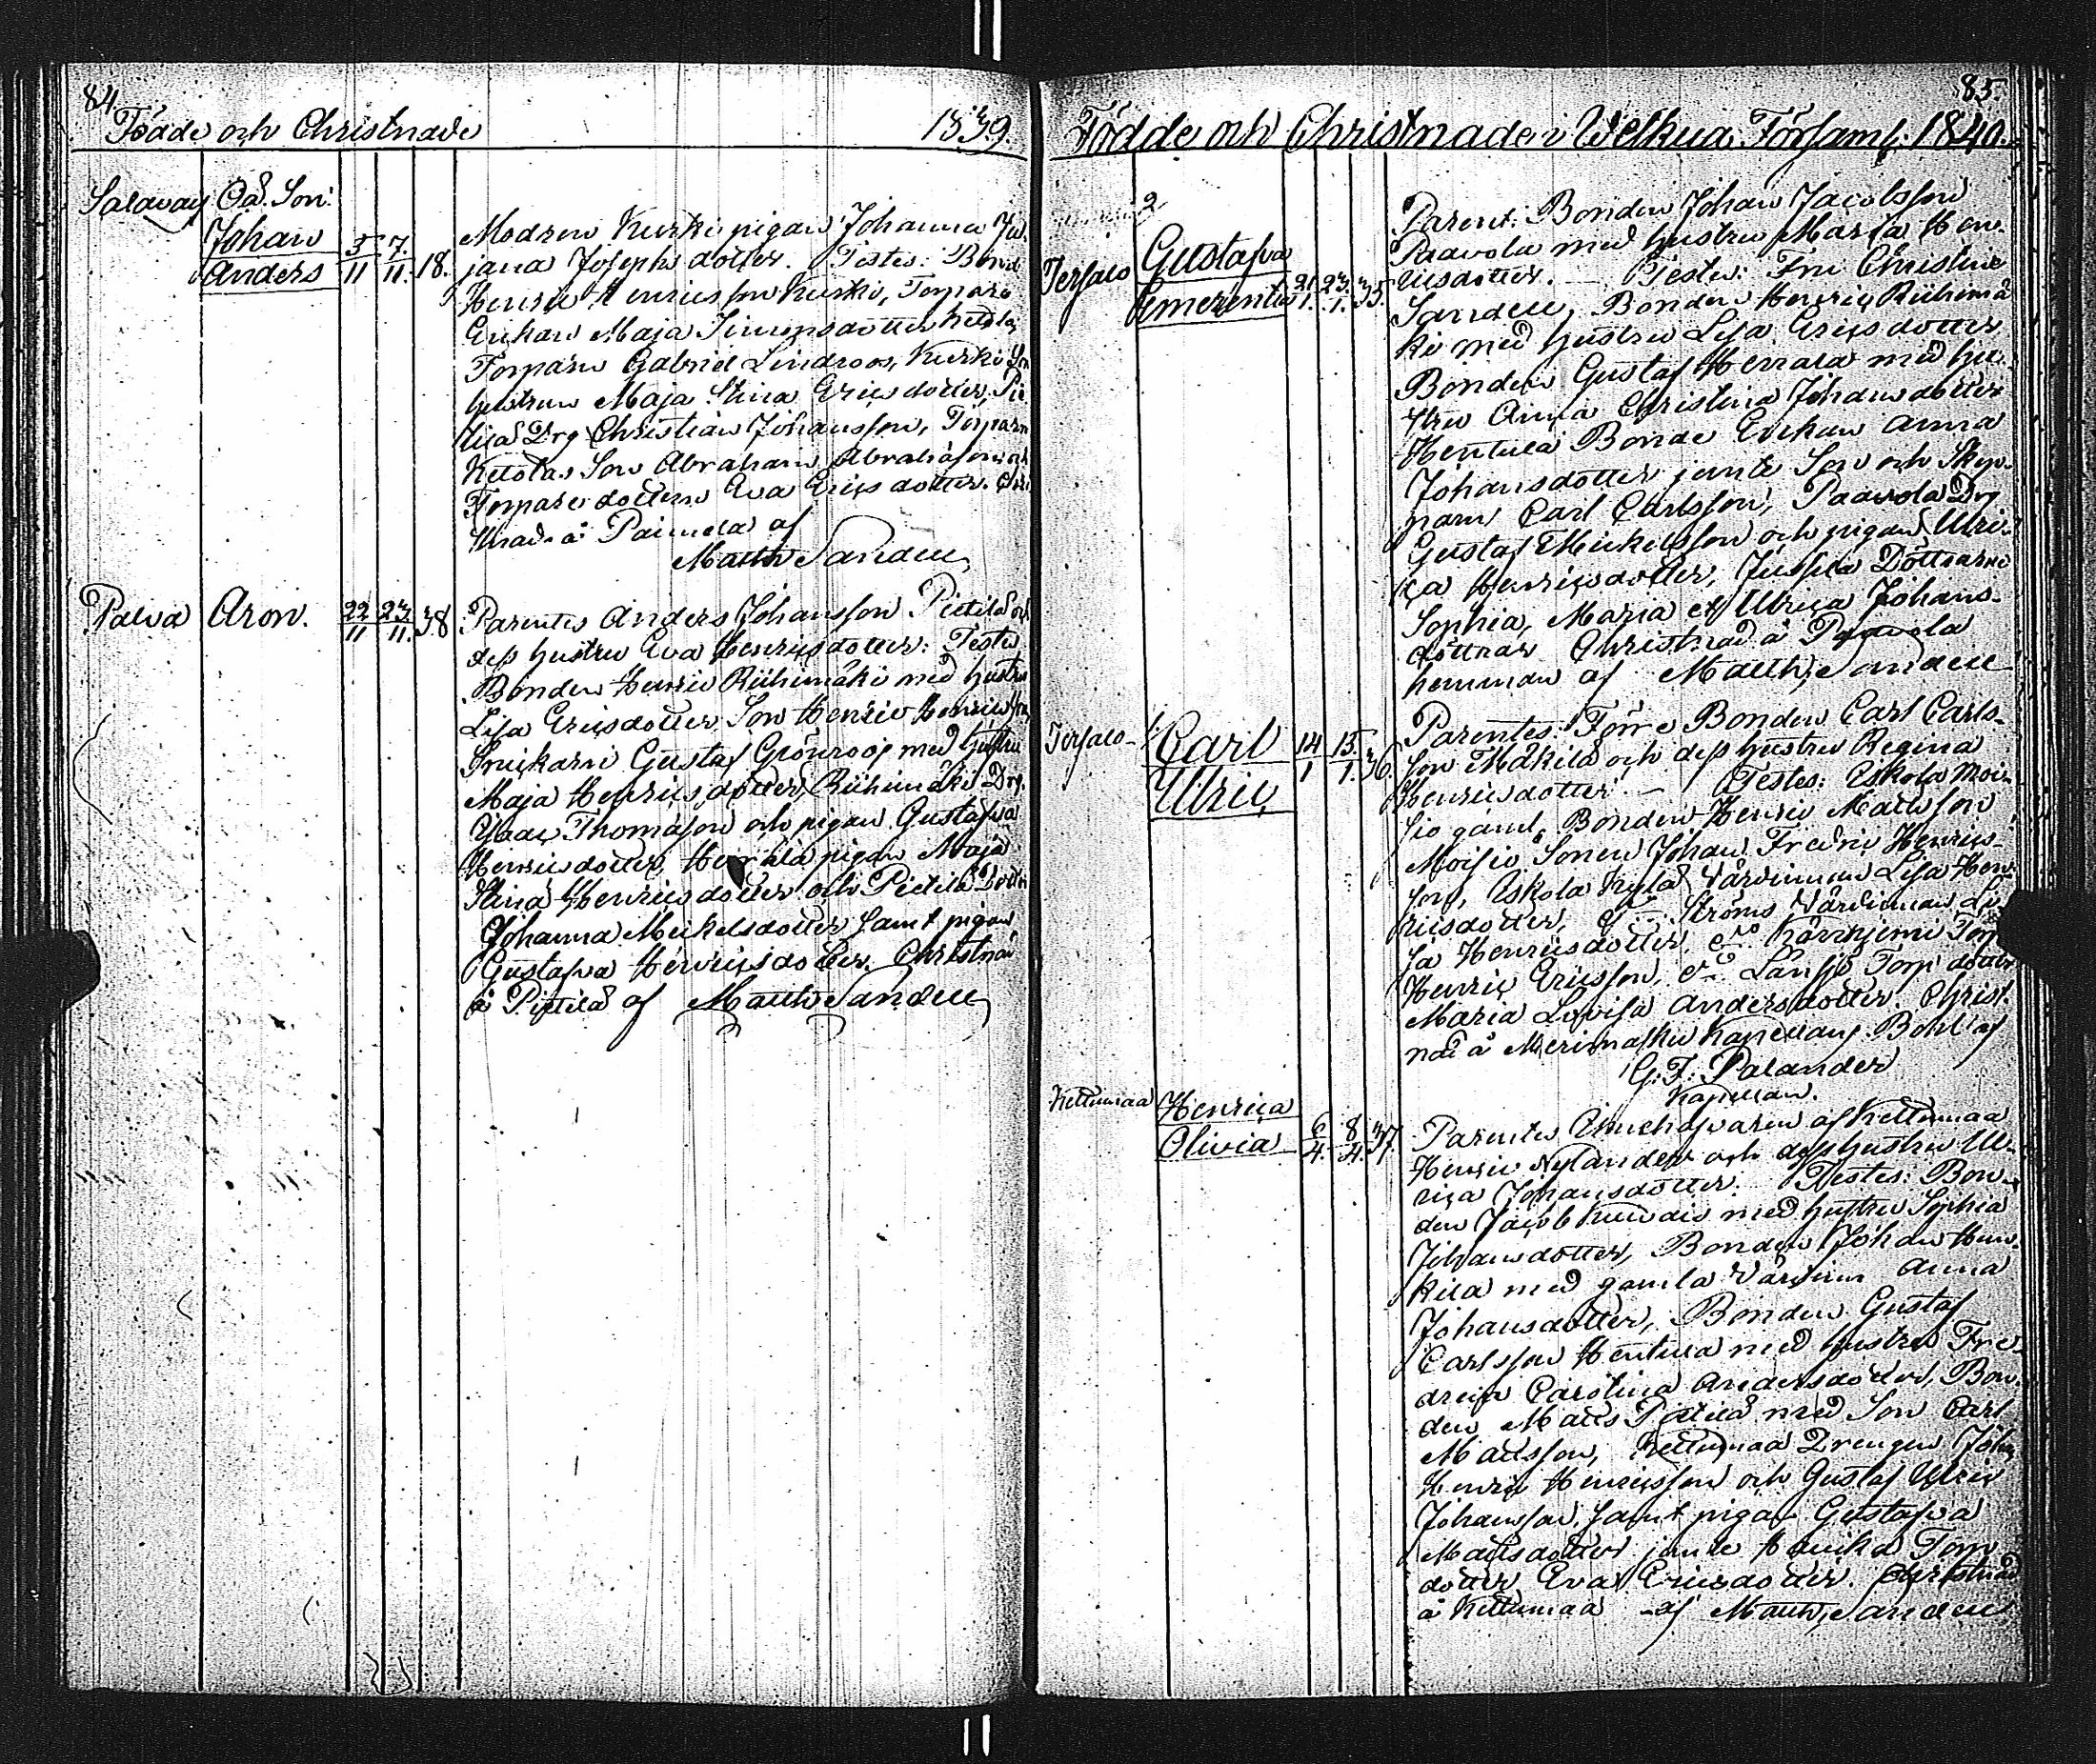 84.
Födde och Christnade 1839.
Salavay Oä. Son:
Johan
Anders 5/11 7./11. 18.
Modren Kurki pigan Johanna Ju-
jana Josephsdotter. Testes: Bond
Henric Henricsson Kurki, Torpare
Enkan Maja Simonsdotter Ketola,
Torparn Gabriel Lindroos, Kurki Son
hustrun Maja Stina Ericsdotter, Pie
tilä Drg Christian Johansson, Torparn
Ketolas Son Abraham Abrahasson och
Torpare dottern Eva Ericsdotter. Chri
stnad å Paimela af
Matth Sandell
Palva Aron. 22/11 23/11. 38
Parentes Anders Johansson Pietilä och
dess hustru Eva Henricsdotter: Teste
Bonden Henric Riihimäki med hustru
Lisa Ericsdotter, Son Henric Henricsson,
Snickarn Gustaf Grönroos med hustru
Maja Henricsdotter, Riihimäki Drg.
Isaac Thomasson och pigan Gustafva
Henricsdotter, Herrala pigan Maja
Stina Henricsdotter och Pietilä Dottr
Johanna Mickelsdotter samt pigan
Gustafva Henricsdotter. Christnad
å Pietilä af Matth Sandell
85.
Födde och Christnade i Welkua Församl: 1840.
2
Tersalo Gustafva
Emerentia 21/1. 23./1. 35.
Parent: Bonden Johan Jacobsson
Paavola med hustru Maria Hen-
ricsdotter. — Testes: Fru Christine
Sandell, Bonden Henric Riihimä
ki med hustru Lisa Ericsdotter
Bonden Gustaf Herrala med hu-
stru Anna Christina Johansdotter
Hentula Bonde Enkan Anna
Johansdotter jemte Son och Skep-
parn Carl Carlsson, Paavola Drg
Gustaf Mickelsson och pigan Ulri-
ca Henricsdotter, Jussila Döttrarne
Sophia, Maria et Ulrica Johans-
döttrar Christnad å Paavola
hemman af Matth. Sandell
Tersalo — Carl
Ulric 14/1 15./1. 36.
Parentes: Förre Bonden Carl Carls-
son Mäkilä och dess hustru Regina
Henricsdotter. — Testes: Askola Moi-
sio gaml. Bonden Henric Mattsson
Moisio Sonen Johan Fredric Henrics-
son, Askola Kylä Värdinnan Lisa Hen-
ricsdotter, Ströms Värdinnan Li-
sa Henricsdotter, Kärrnjemi Torp
Henric Ericsson, Länsiö Torp dotter
Maria Lovisa Andersdotter. Christ-
nad å Merimasku Kapellans Bohl af
G: F: Palander
Kapellan.
Kettumaa Henrica
Olivia 6/4. 8/4. 37.
Parentes Inhysvaren af Kettumaa
Henric Nylander och dess hustru Ul-
rica Johansdotter. Testes: Bon-
den Jacob med hustru Sophia
Johansdotter, Bonden Johan Hen-
kila med gamla Värdinn Anna
Johansdotter, Bonden Gustaf
Carlsson Hentula med hustru Fre-
drica Carolina Andersdotter, Bon-
den Matts Pietilä med Son Carl
Mattsson, Kettumaa Drengen Johan
Henric Henricsson och Gustaf Ulric
Johansson, samt pigan Gustafva
Mattsdotter jemte Torp
dotter Eva Ericsdotter. Christnad
å Kettumaa — af Matth. Sandell